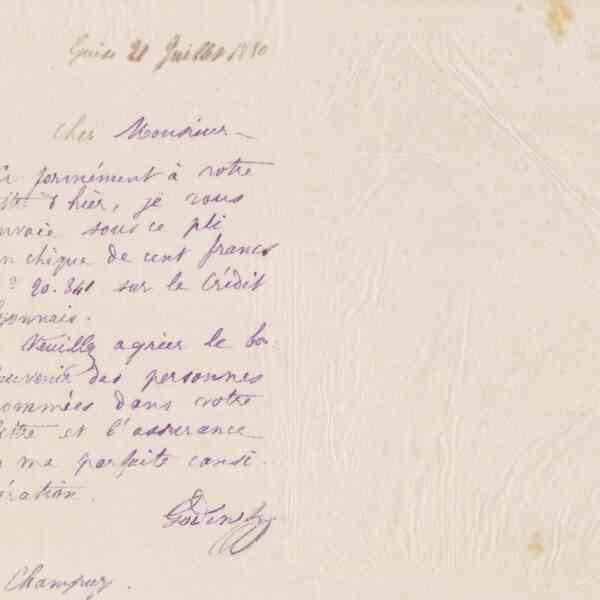 Guise 21 Juillet 1890
Cher Monsieur
formément à votre
d'hier, je vous
envoie sous ce pli
un chèque de cent francs
20.341 sur le Crédit
yonnais.
Veuillez agréer le bon
souvenir des personnes
nommées dans votre
lettre et l'assurance
ma parfaite consi-
ération.
Godin
Champury.